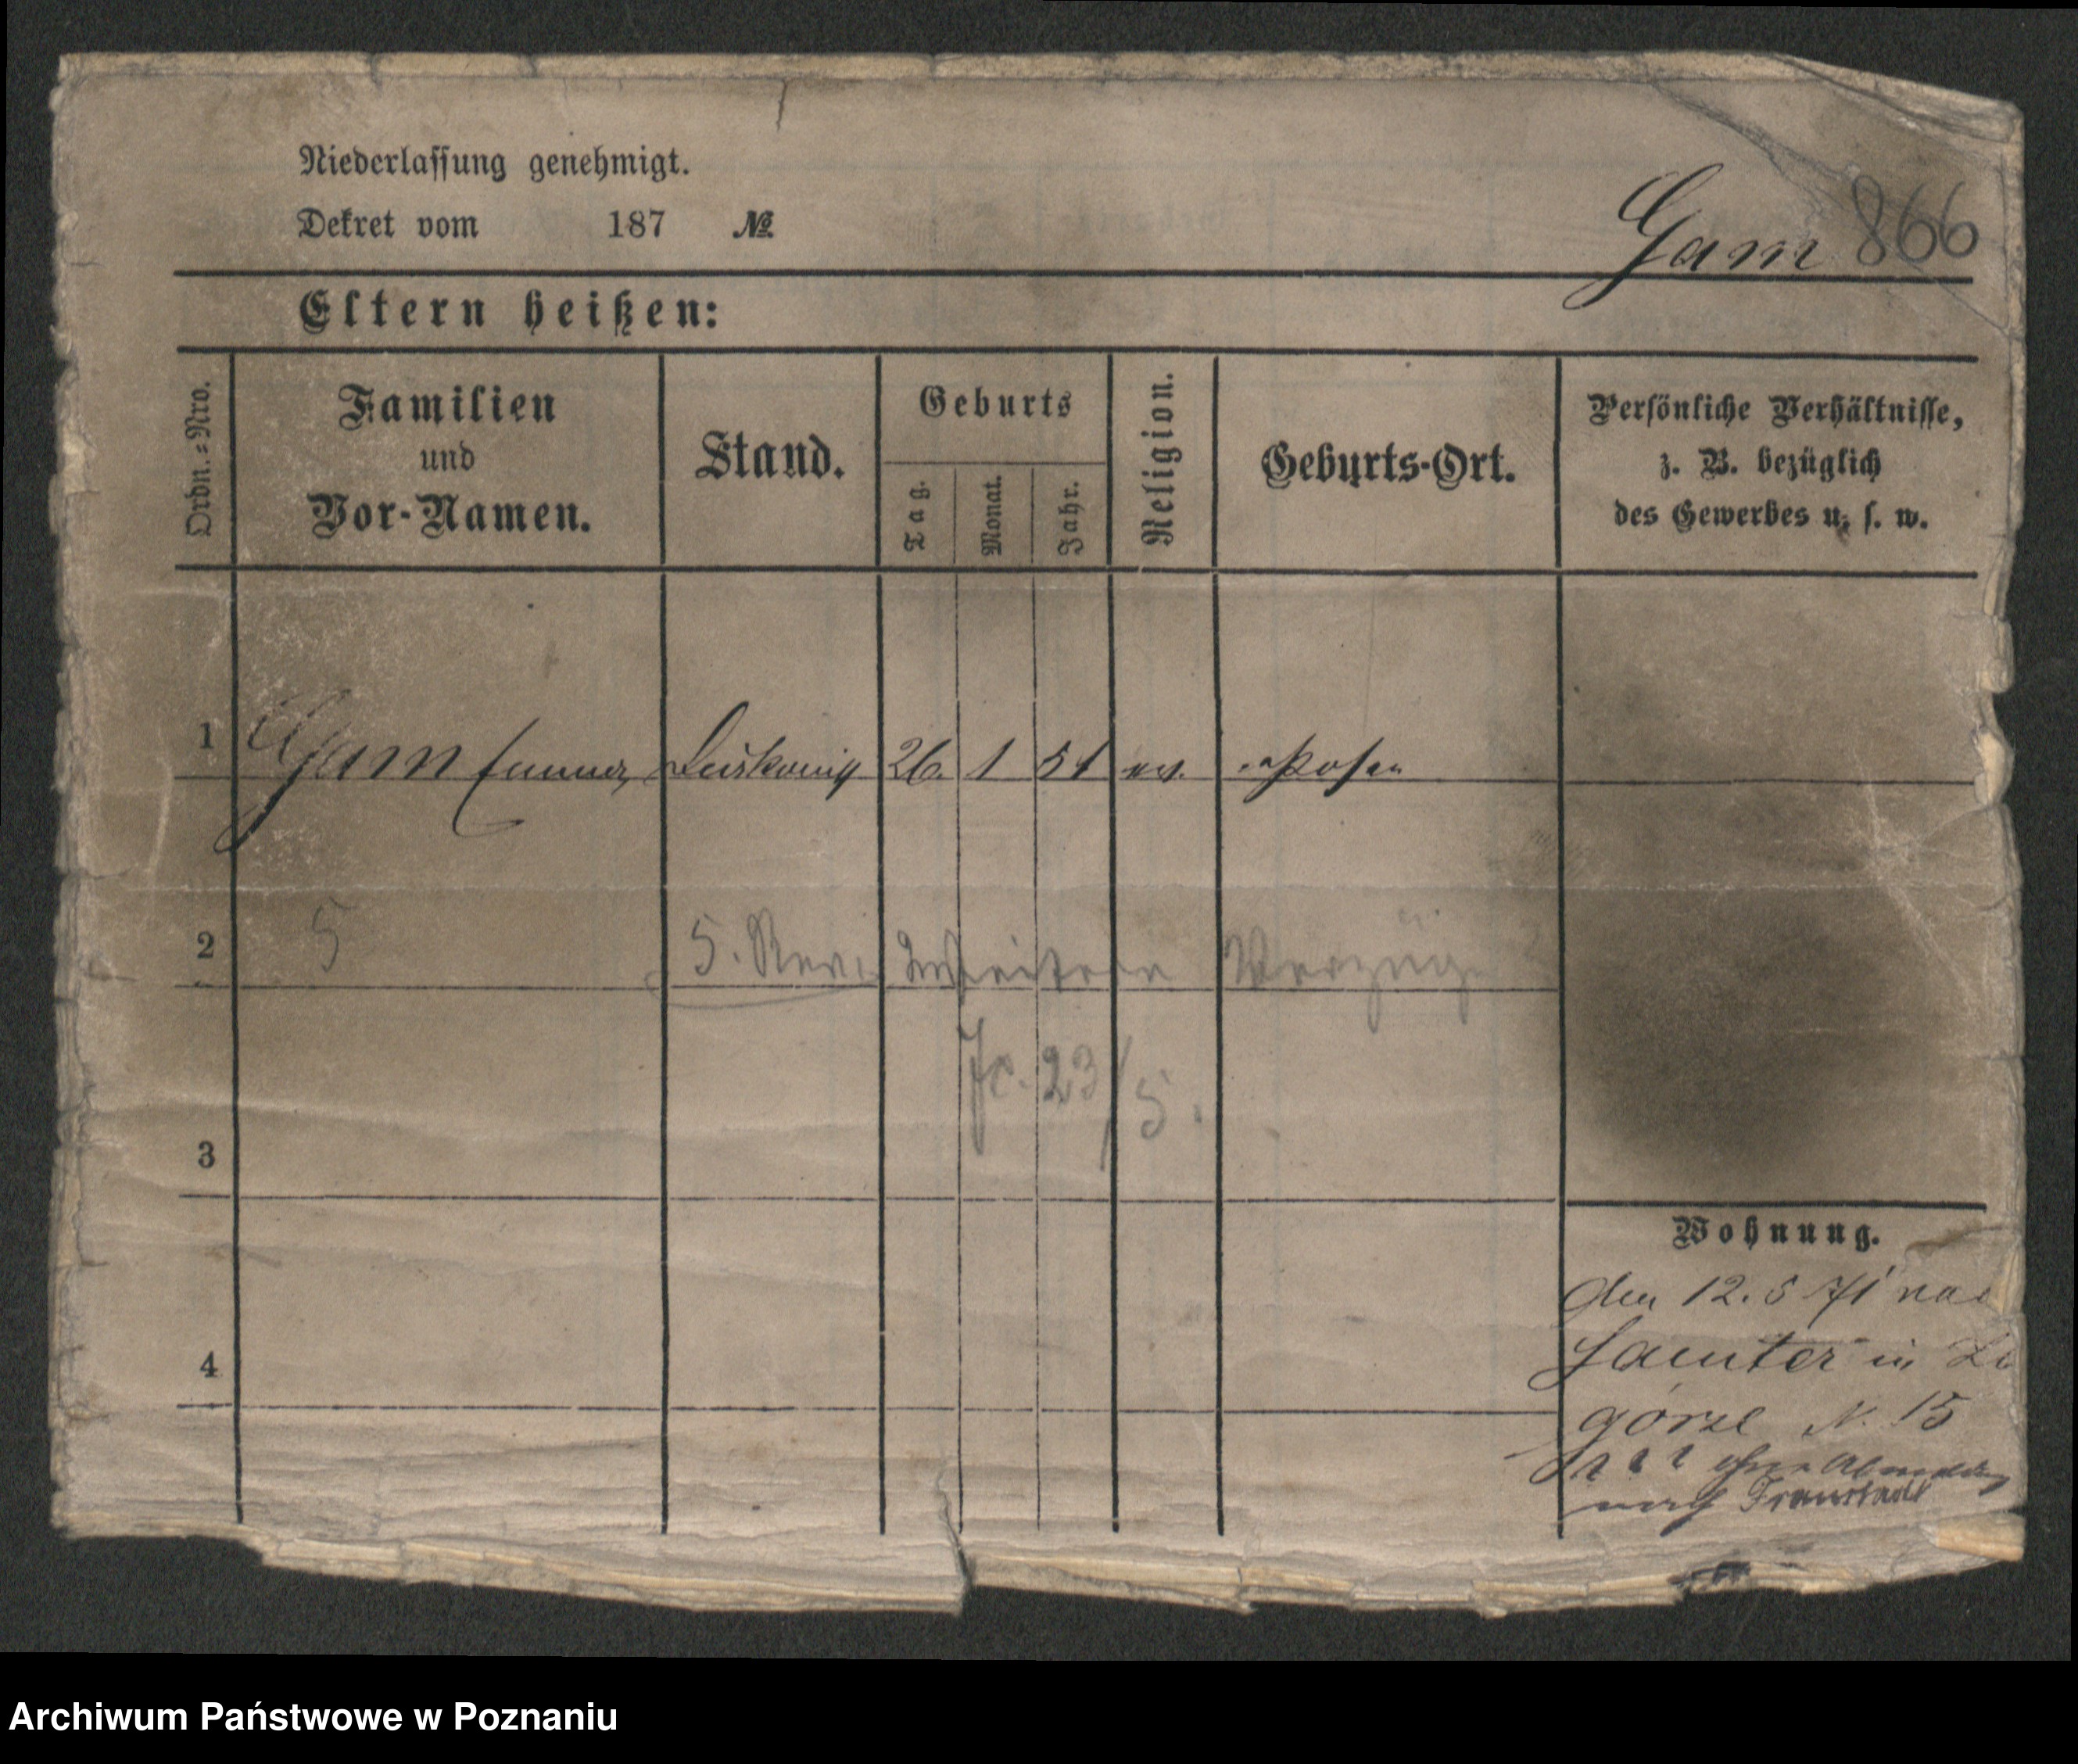 Niederlassung genehmigt.
Dekret vom 187 №
Gam 866
Eltern heißen:
Ordn.=Nro.
Familien
und
Vor-Namen.
Stand.
Geburts
Tag.
Monat.
Jahr.
Religion.
Geburts-Ort.
Persönliche Verhältnisse,
z. B. bezüglich
des Gewerbes u. s. w.
1 Gam 26. 1 51 ev. Posen
2 5 5.
23/5.
3
Wohnung.
den 12. 5 71
Samter in
górze N. 15
4
nach Fraustadt
Archiwum Państwowe w Poznaniu